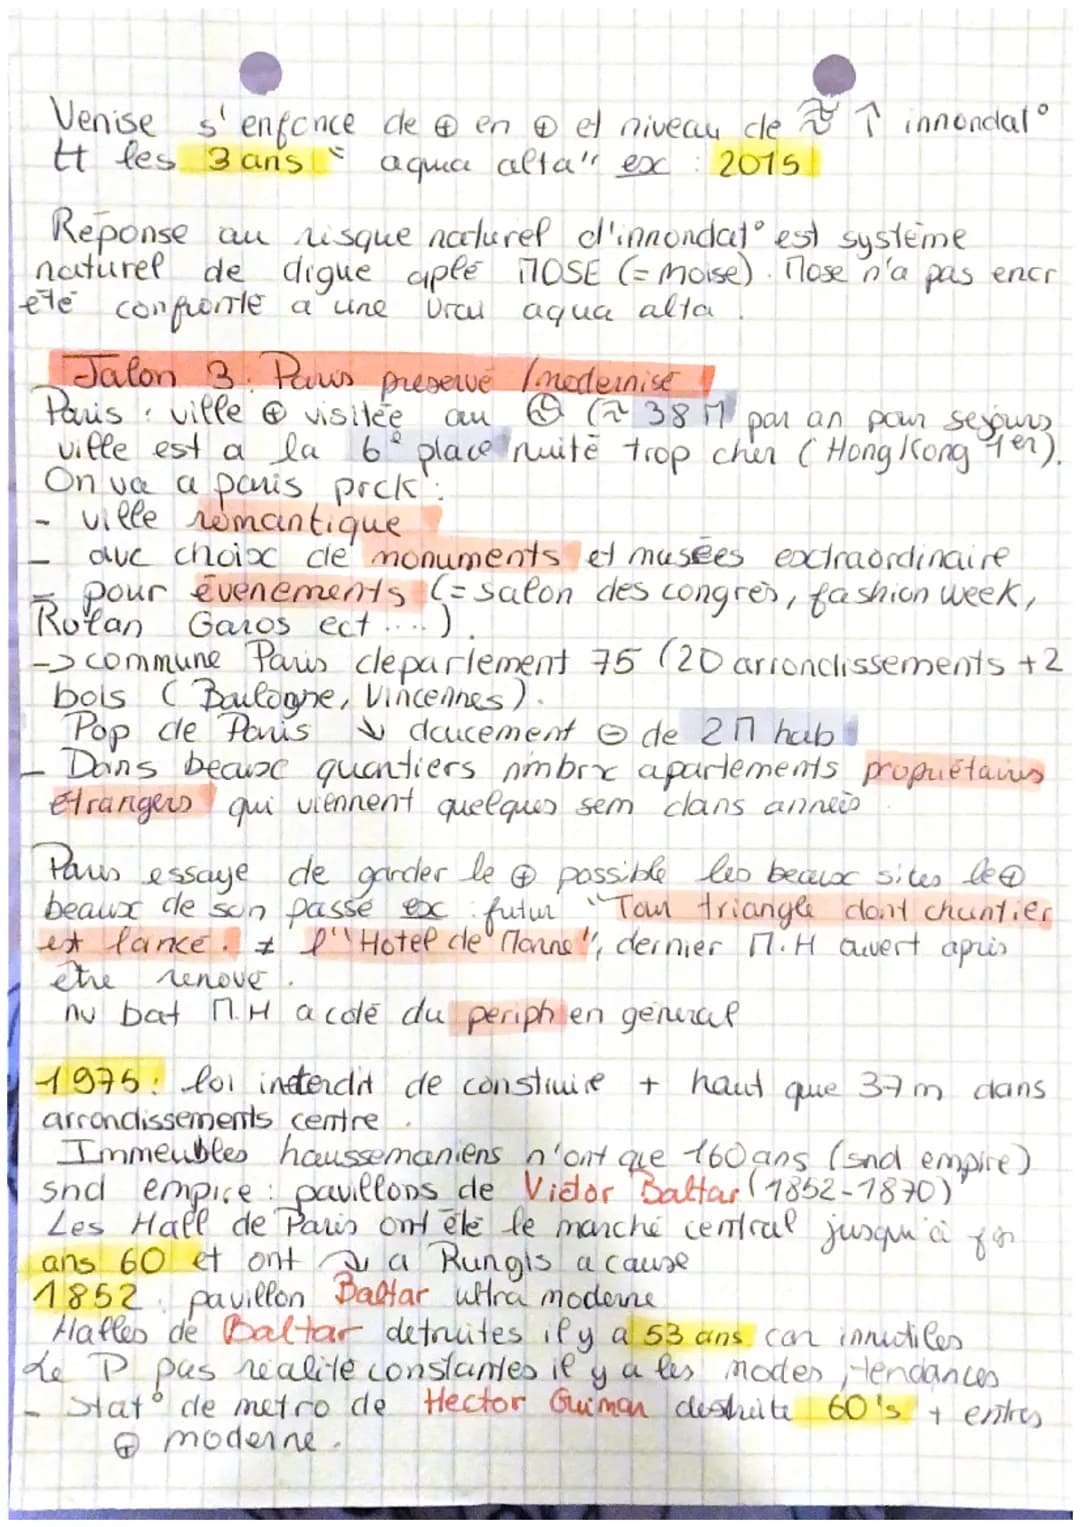 Venise s'enfonce de ⊕ en ⊕ et niveau de ↑ innondat°
tt les 3 ans " aqua alta" ex : 2015
Réponse au risque naturel d'innondat° est système
naturel de digue aplé MOSE (= Moise). Mose n'a pas encr
été confronté a une vrai aqua alta.
Jalon 3: Paris préservé / modernisé
Paris : ville ⊕ visitée au (≈ 38 M par an pour sejours
ville est a la 6° place nuité trop cher (Hong Kong 1er).
On va a paris prck :
- ville romantique
- avc choix de monuments et musées extraordinaire
- pour évenements (= salon des congrès, fashion week,
Rolan Garos ect ....).
-> commune Paris département 75 (20 arrondissements +2
bois (Boulogne, Vincennes).
Pop de Paris ↓ doucement ⊖ de 2M hab
- Dans beaux quartiers nmbrx apartements propriétaires
étrangers qui viennent quelques sem dans année
Paris essaye de garder le ⊕ possible les beaux sites le ⊕
beaux de son passé ex : futur "Tour triangle dont chantier
est lancé. ≠ l'"Hotel de Marine", dernier M.H ouvert après
être renové.
nv bat M.H a coté du periph en général
1975: loi interdit de construire + haut que 37m dans
arrondissements centre.
Immeubles haussemaniens n'ont que 160 ans (snd empire)
snd empire : pavillons de Victor Baltar (1852-1870)
Les Hall de Paris ont été le marché central jusqu'à
ans 60 et ont a Rungis a cause
1852 : pavillon Baltar ultra moderne
Halles de Baltar detruites il y a 53 ans car innutiles
Le P pas réalité constantes il y a les modes, tendances
- Stat° de metro de Hector Guimar destruite 60's + entres
⊕ moderne.